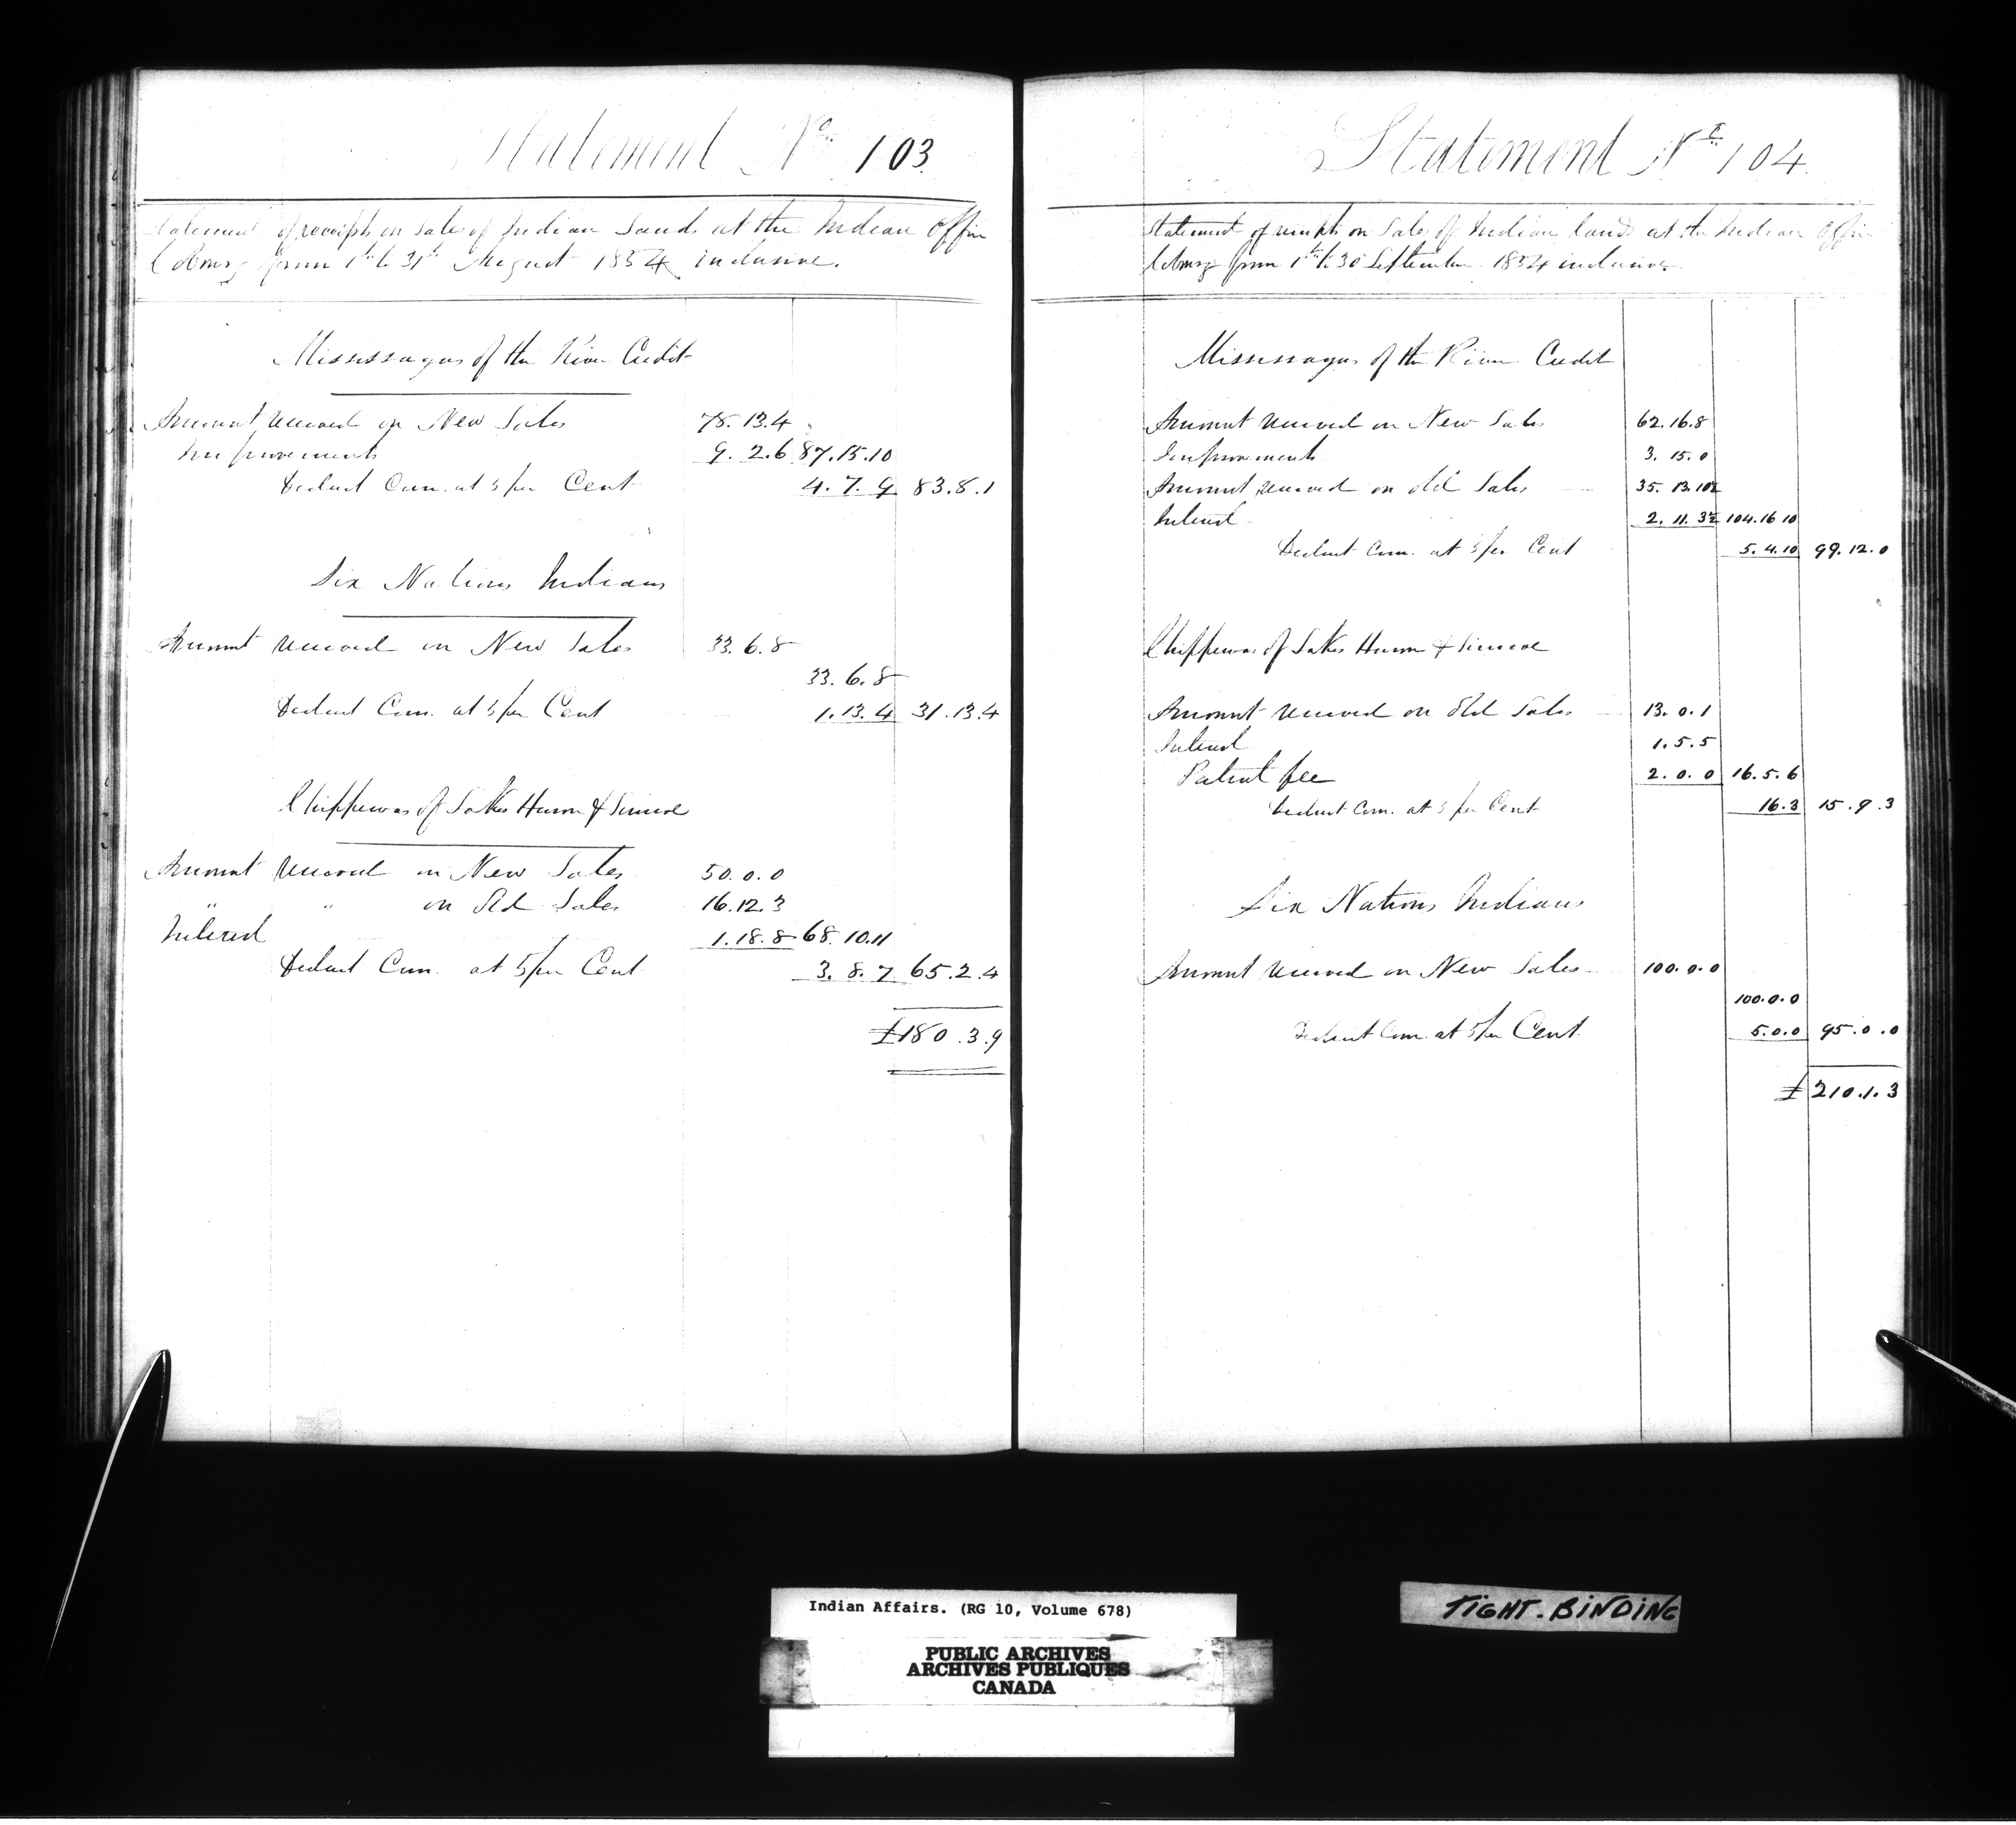 Statement No. 103.
Statement of receipts on Sales of Indian Lands at the Indian Office
Cobourg from 1st to 31st August 1854 inclusive.
Mississagas of the River Credit
Amount received on New Sales 78. 13. 4
Improvements 9. 2. 6 87. 15. 10
Deduct Com. at 5 per Cent 4. 7. 9 83. 8. 1
Six Nations Indians
Amount received on New Sales 33. 6. 8
33. 6. 8
Deduct Com. at 5 per Cent 1. 13. 4 31. 13. 4
Chippewas of Lakes Huron & Simcoe
Amount received on New Sales 50. 0. 0
" " on Old Sales 16. 12. 3
Interest 1. 18. 8 68. 10. 11
Deduct Com. at 5 per Cent 3. 8. 7 65. 2. 4
£180. 3. 9
Statement No. 104.
Statement of receipts on Sales of Indian lands at the Indian Office
Cobourg from 1st to 30 September 1854 inclusive.
Mississagas of the River Credit
Amount received on New Sales 62. 16. 8
Improvements 3. 15. 0
Amount received on old Sales 35. 13. 10½
Interest 2. 11. 3½ 104. 16 10
Deduct Com. at 5 per Cent 5. 4. 10 99. 12. 0
Chippewas of Lakes Huron & Simcoe
Amount received on Old Sales 13. 0. 1
Interest 1. 5. 5
Patent fee 2. 0. 0 16. 5. 6
Deduct Com. at 5 per Cent 16. 3 15. 9. 3
Six Nations Indians
Amount received on New Sales 100. 0. 0
100. 0. 0
Deduct Com. at 5 per Cent 5. 0. 0 95. 0. 0
£ 210. 1. 3
Indian Affairs. (RG 10, Volume 678)
PUBLIC ARCHIVES
ARCHIVES PUBLIQUES
CANADA
TIGHT. BINDING